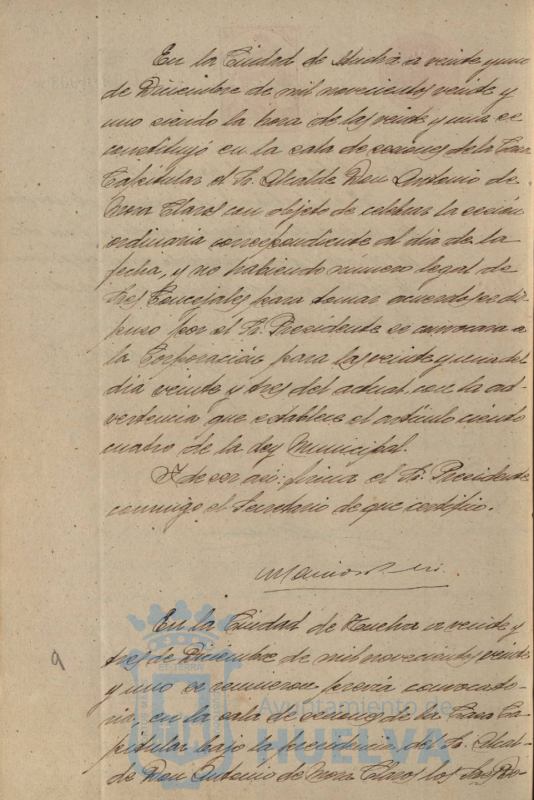 En la Ciudad de Huelva a veinte y uno
de Diciembre de mil novecientos veinte y
uno siendo la hora de las veinte y una se
constituyó en la sala de sesiones de la Casa
Capitular el Sr. Alcalde Don Antonio de
Mora Claros con objeto de celebrar la sesión
ordinaria correspondiente al dia de la
fecha, y no habiendo número legal de
Sres Concejales para tomar acuerdo se dis-
puso por el Sr. Presidente se convocara a
la Corporación para las veinte y una del
dia veinte y tres del actual con la ad-
vertencia que establece el artículo ciento
cuatro de la Ley Municipal.
Y de ser asi firma el Sr. Presidente
conmigo el Secretario de que certifico.
En la Ciudad de Huelva a veinte y
9
tres de Diciembre de mil novecientos veinte
y uno se reunieron previa convocato-
ria, en la sala de sesiones de la Casa Ca-
pitular bajo la presidencia del Sr. Alcal-
de Don Antonio de Mora Claros los Sres Do-
Ayuntamiento de
HUELVA